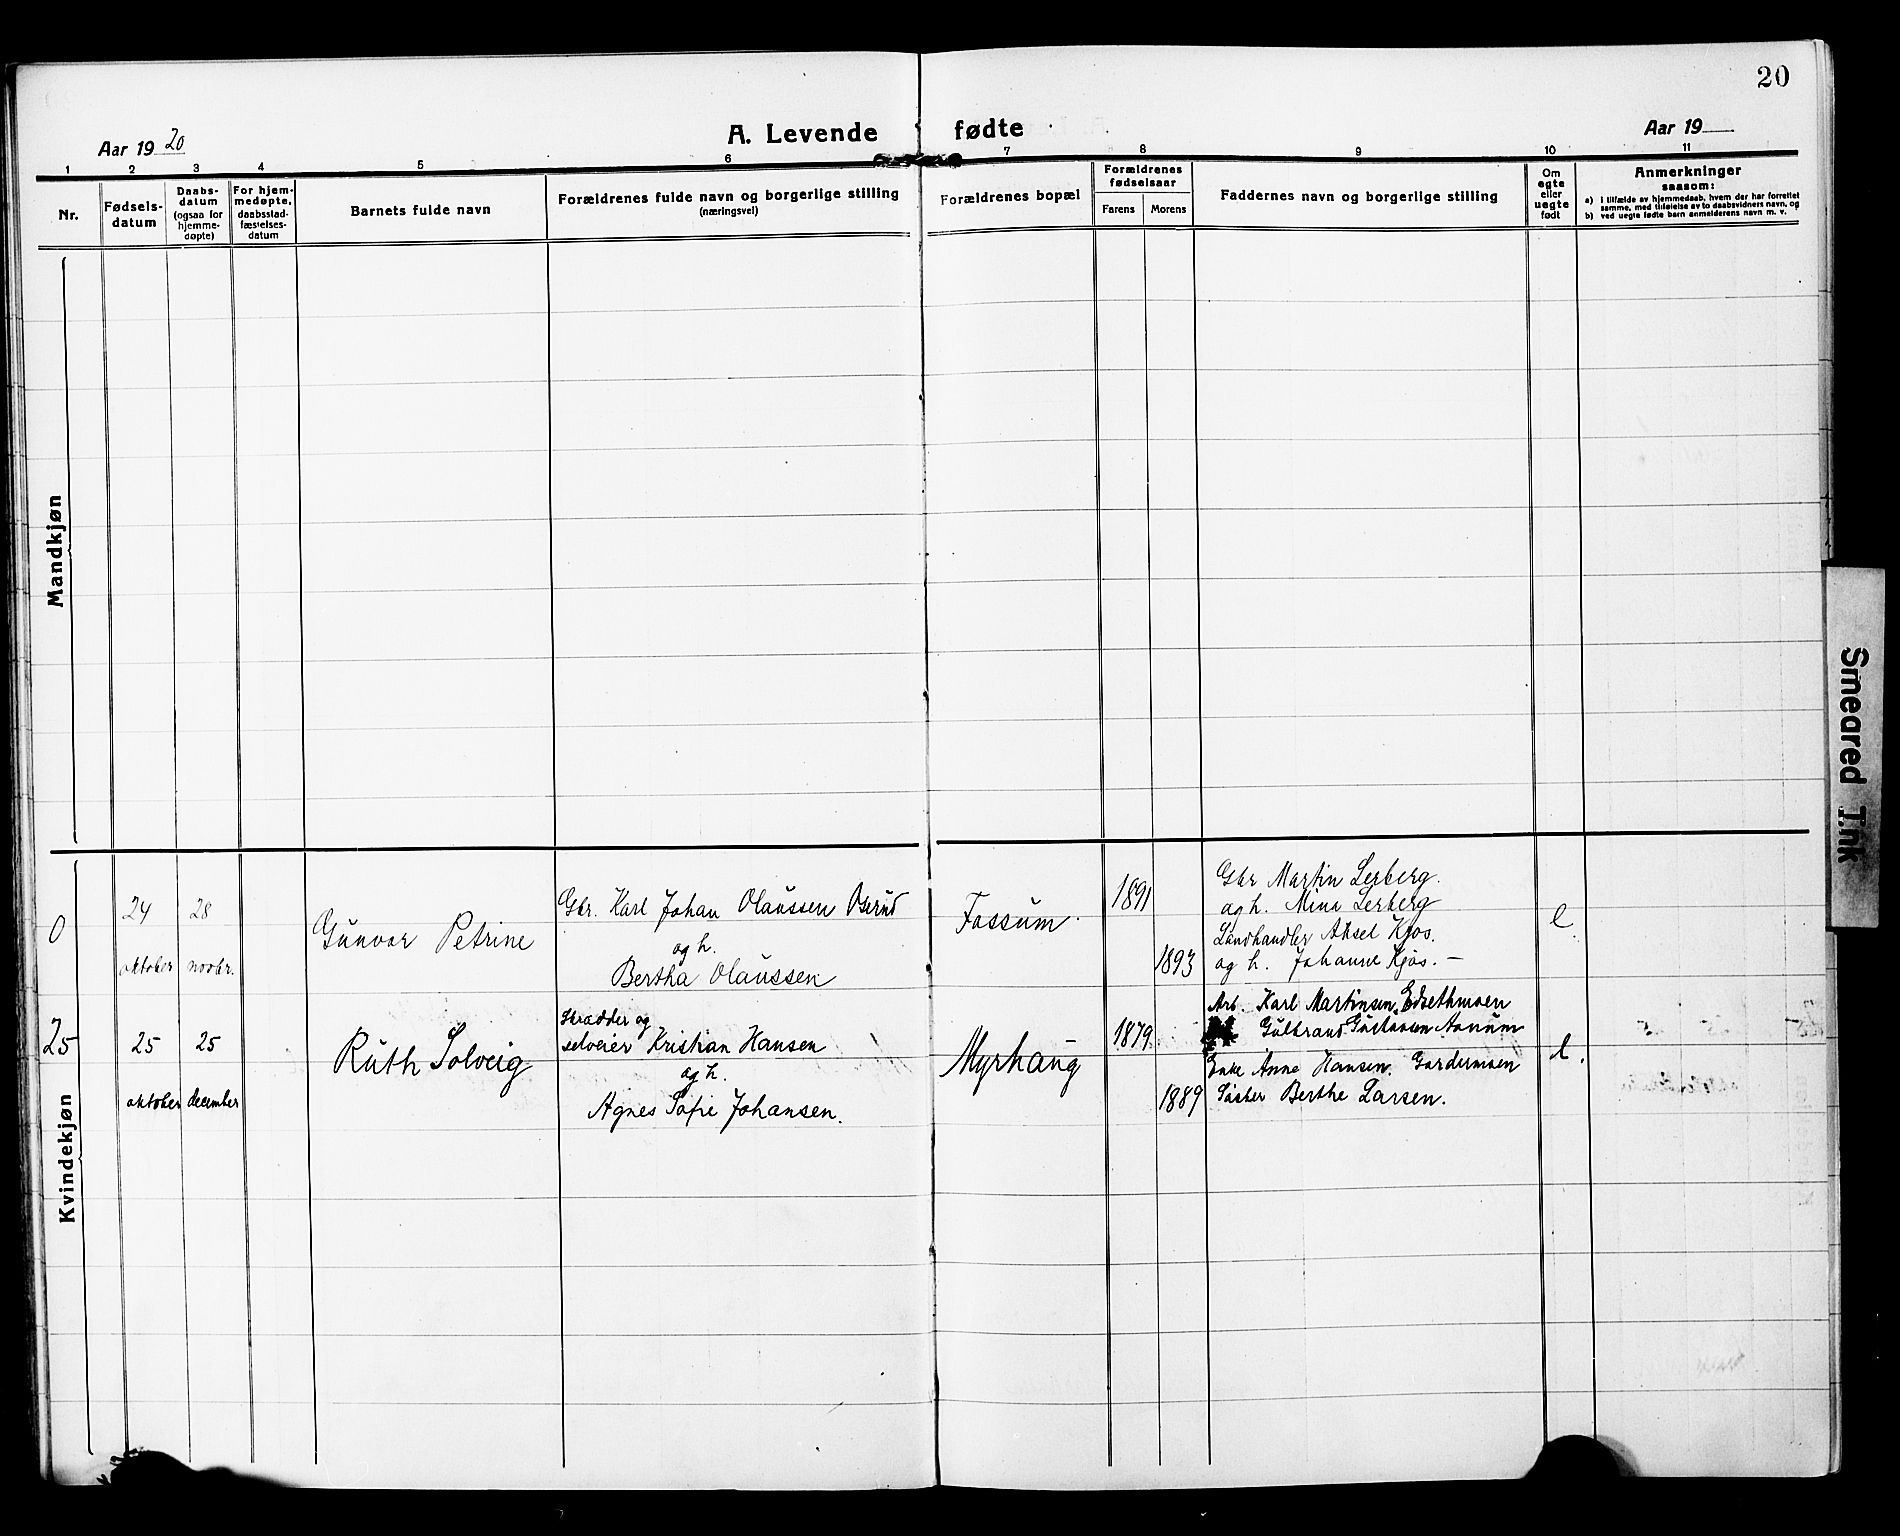 20
Aar 1920
A. Levende fødte
Aar 19
1 2 3 4 5 6 7 8 9 10 11
Nr.
Fødsels-
datum
Daabs-
datum
(ogsaa for
hjemme-
døpte)
For hjem-
medøpte,
daabsstad-
fæstelses-
datum
Barnets fulde navn
Forældrenes fulde navn og borgerlige stilling
(næringsvei)
Forældrenes bopæl
Forældrenes
fødselsaar
Farens Morens
Faddernes navn og borgerlige stilling
Om
egte
eller
uegte
født
Anmerkninger
saasom:
a) i tilfælde av hjemmedaab, hvem der har forrettet
samme, med tilføielse av to daabsvidners navn, og
b) ved uegte fødte barn anmelderens navn m. v.
Mandkjøn
Kvindekjøn
0
24
oktober
28
novbr.
Gunvor Petrine
Gbr. Karl Johan Olaussen Oserud
og h.
Bertha Olaussen
Fossum.
1891
1893
Gbr Martin Lerberg.
og h. Mina Lerberg
Landhandler Aksel Kjos.
og h. Johanne Kjos. —
e.
25
25
oktober
25
december
Ruth Solveig
Skrædder og
selveier Kristian Hansen
og h.
Agnes Sofie Johansen.
Myrhaug
1879
1889
Arb. Karl Martinsen,
Gulbrand Gustavsen
Enke Anne Hansen. Gardermoen
Søster Berthe Larsen.
e.
Smeared Ink